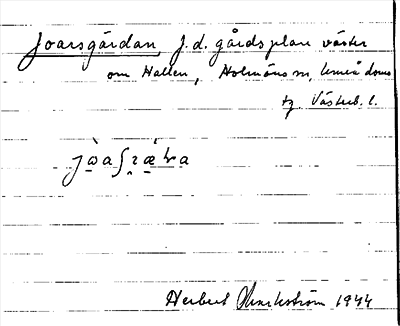 Joarsgårdan, f.d. gårdsplan väster
om Hallen, Holmöns sn, Umeå doms
tg Västerb. l.
Herbert Markström 1944